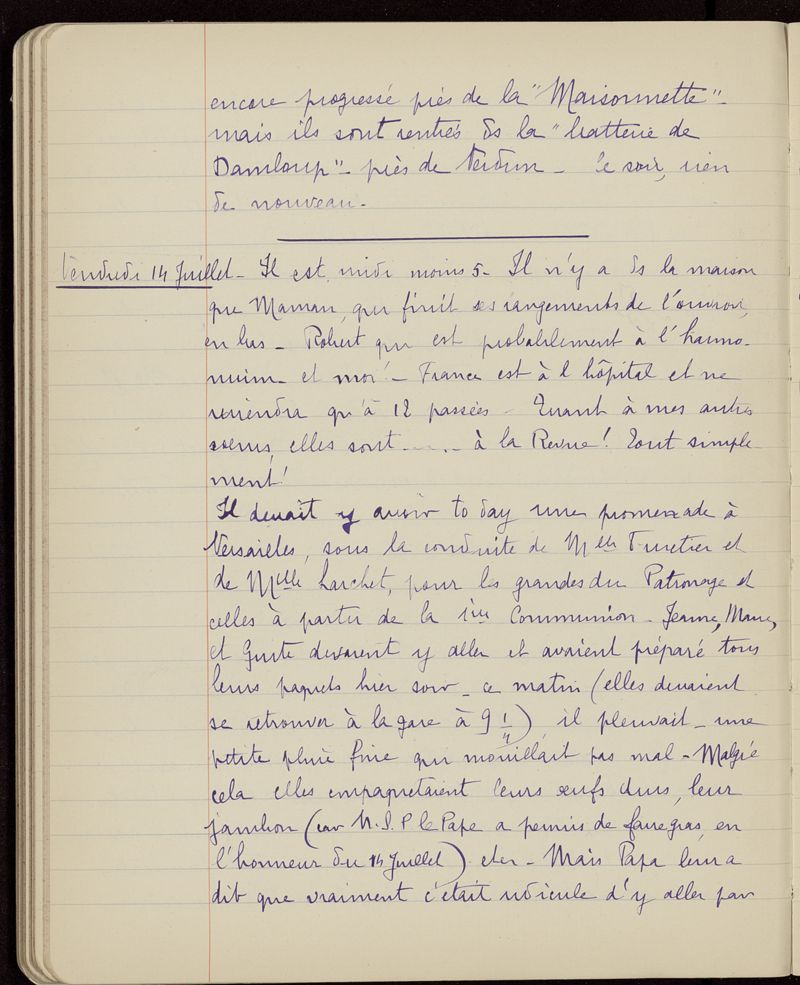 encore progressé près de la "Maisonnette" -
mais ils sont rentrés ds la "batterie de
Damloup" - près de Verdun - le soir, rien
de nouveau -
Vendredi 14 Juillet - Il est midi moins 5 - Il n'y a ds la maison
que Maman, qui finit ses rangements de l'ouvroir,
en bas - Robert qui est probablement à l'harmo-
nium - et moi! - France est à l'hôpital et ne
reviendra qu'à 12 passées - Quant à mes autres
soeurs, elles sont ..... à la Revue! Tout simple
ment!
Il devait y avoir to day une promenade à
Versailles, sous la conduite de Melle Furetier et
de Melle Larchet, pour les grandes du Patronage et
celles à partir de la 1ère Communion - Jeanne, Marie,
et Guite devaient y aller et avaient préparé tous
leurs paquets hier soir - ce matin (elles devaient
se retrouver à la gare à 9 1/4) il pleuvait - une
petite pluie fine qui mouillait pas mal - Malgré
cela elles empaquetaient leurs œufs durs, leur
jambon (car N.S.P le Pape a permis de faire gras, en
l'honneur du 14 Juillet) etc - Mais Papa leur a
dit que vraiment c'était ridicule d'y aller par